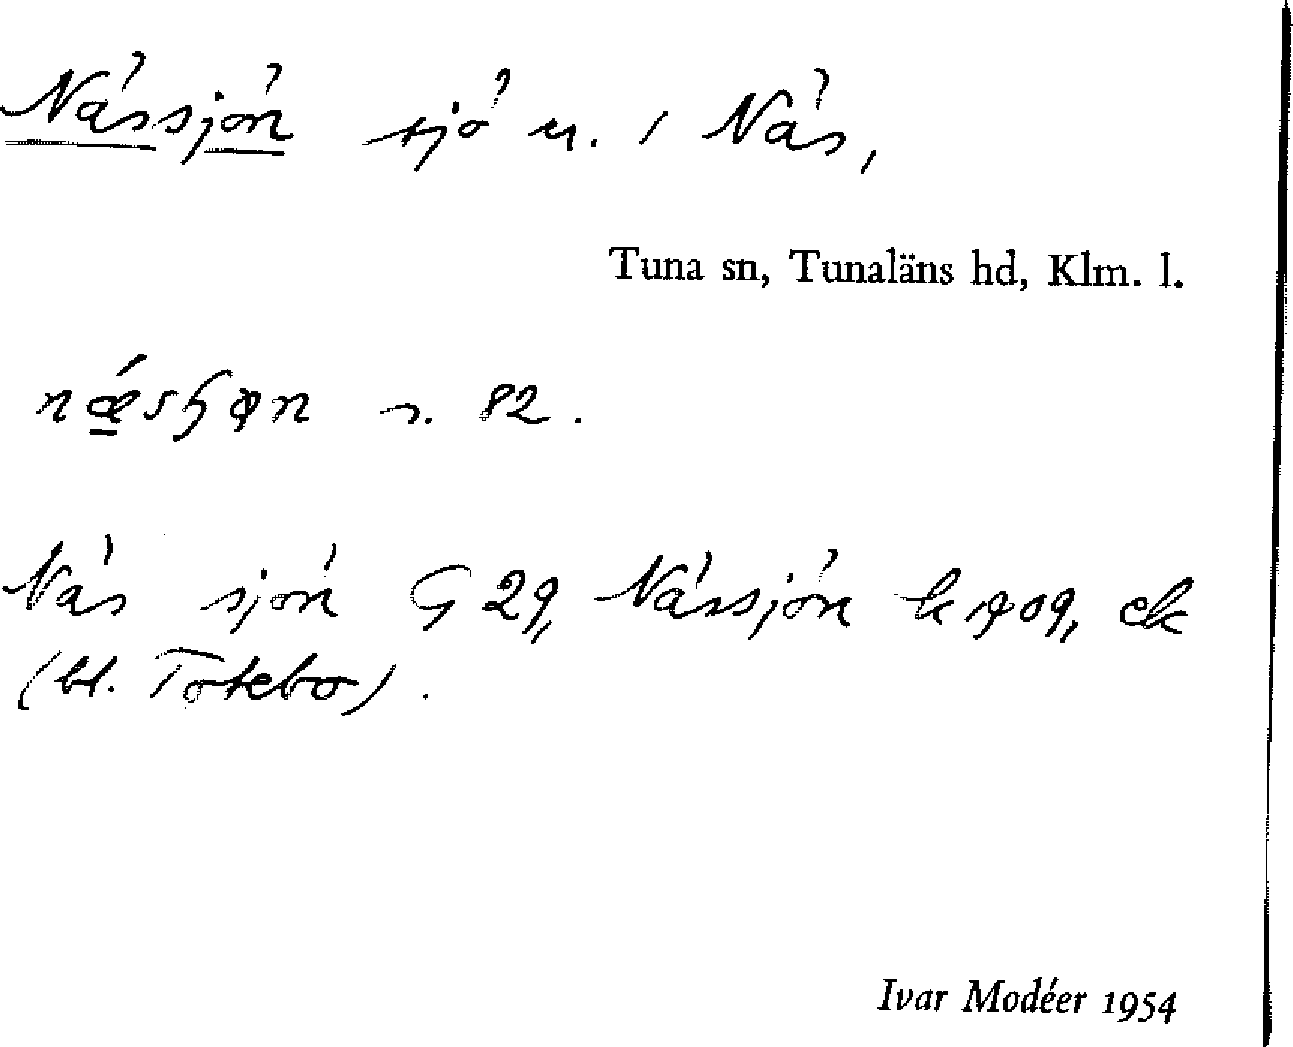 Nässjön sjö n. / Näs,
Tuna sn, Tunaläns hd, Klm. l.
s. 82.
Näs sjön G 29, Nässjön k 1909, ek
(bl. Totebo).
Ivar Modéer 1954